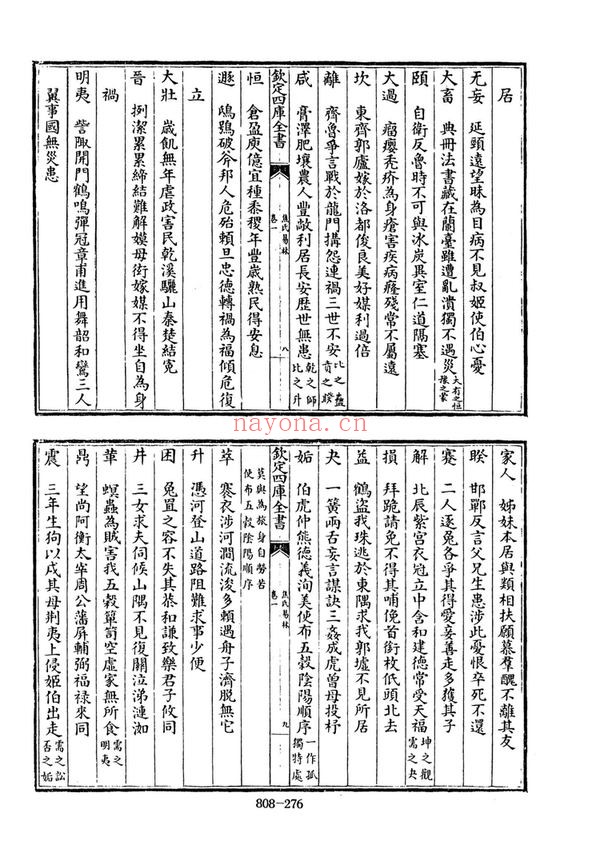 居
无妄　延頸遠望昧為目病不見叔姬使伯心憂
大畜　典冊法書藏在蘭臺雖遭亂潰獨不遇災大有之恒豫之蒙
頤　自衛反魯時不可與冰炭異室仁道隔塞
大過　瘤癭禿疥為身瘡害疾病癃殘常不屬遠
坎　東齊郭廬嫁於洛都俊良美好媒利過倍
離　齊魯爭言戰於龍門搆怨連禍三世不安比之益賁之睽
咸　膏澤肥壤農人豐敞利居長安歷世無患乾之師比之升
欽定四庫全書　卷一　焦氏易林　八
恒　倉盈庾億宜種黍稷年豐歲熟民得安息
遯　鴟鴞破斧邦人危殆賴旦忠德轉禍為福傾危復
立
大壯　歲飢無年虐政害民乾溪驪山秦楚結寃
晉　捌潔累累締結難解嫫母衒嫁媒不得坐自為身
禍
明夷　訾陬開門鶴鳴彈冠章甫進用舞韶和鸞三人
翼事國無災患
家人　姊妹本居與類相扶願慕羣醜不離其友
睽　邯鄲反言父兄生患涉此憂恨卒死不還
蹇　二人逐兔各爭其得愛妄善走多獲其子
解　北辰紫宮衣冠立中含和建德常受天福坤之觀需之夬
損　拜跪請免不得其哺俛首銜枚低頭北去
益　鶴盜我珠逃於東隅求我郭墟不見所居
夬　一簧兩舌妄言謀訣三姦成虎曾母投杼
姤　伯虎仲熊德義洵美使布五穀陰陽順序一作孤獨特處
莫與為旅身自勞苦使布五穀陰陽順序
欽定四庫全書　卷一　焦氏易林　九
萃　褰衣涉河澗流浚多賴遇舟子濟脫無它
升　憑河登山道路阻難求事少便
困　兔罝之容不失其恭和謙致樂君子攸同
井　三女求夫伺候山隅不見復關泣涕漣洳
革　螟蟲為賊害我五穀簞笥空虛家無所食需之明夷
鼎　望尚阿衡太宰周公藩屏輔弼福祿來同
震　三年生狗以戌其母荆夷上侵姬伯出走需之訟否之姤
808-276
nayona.cn